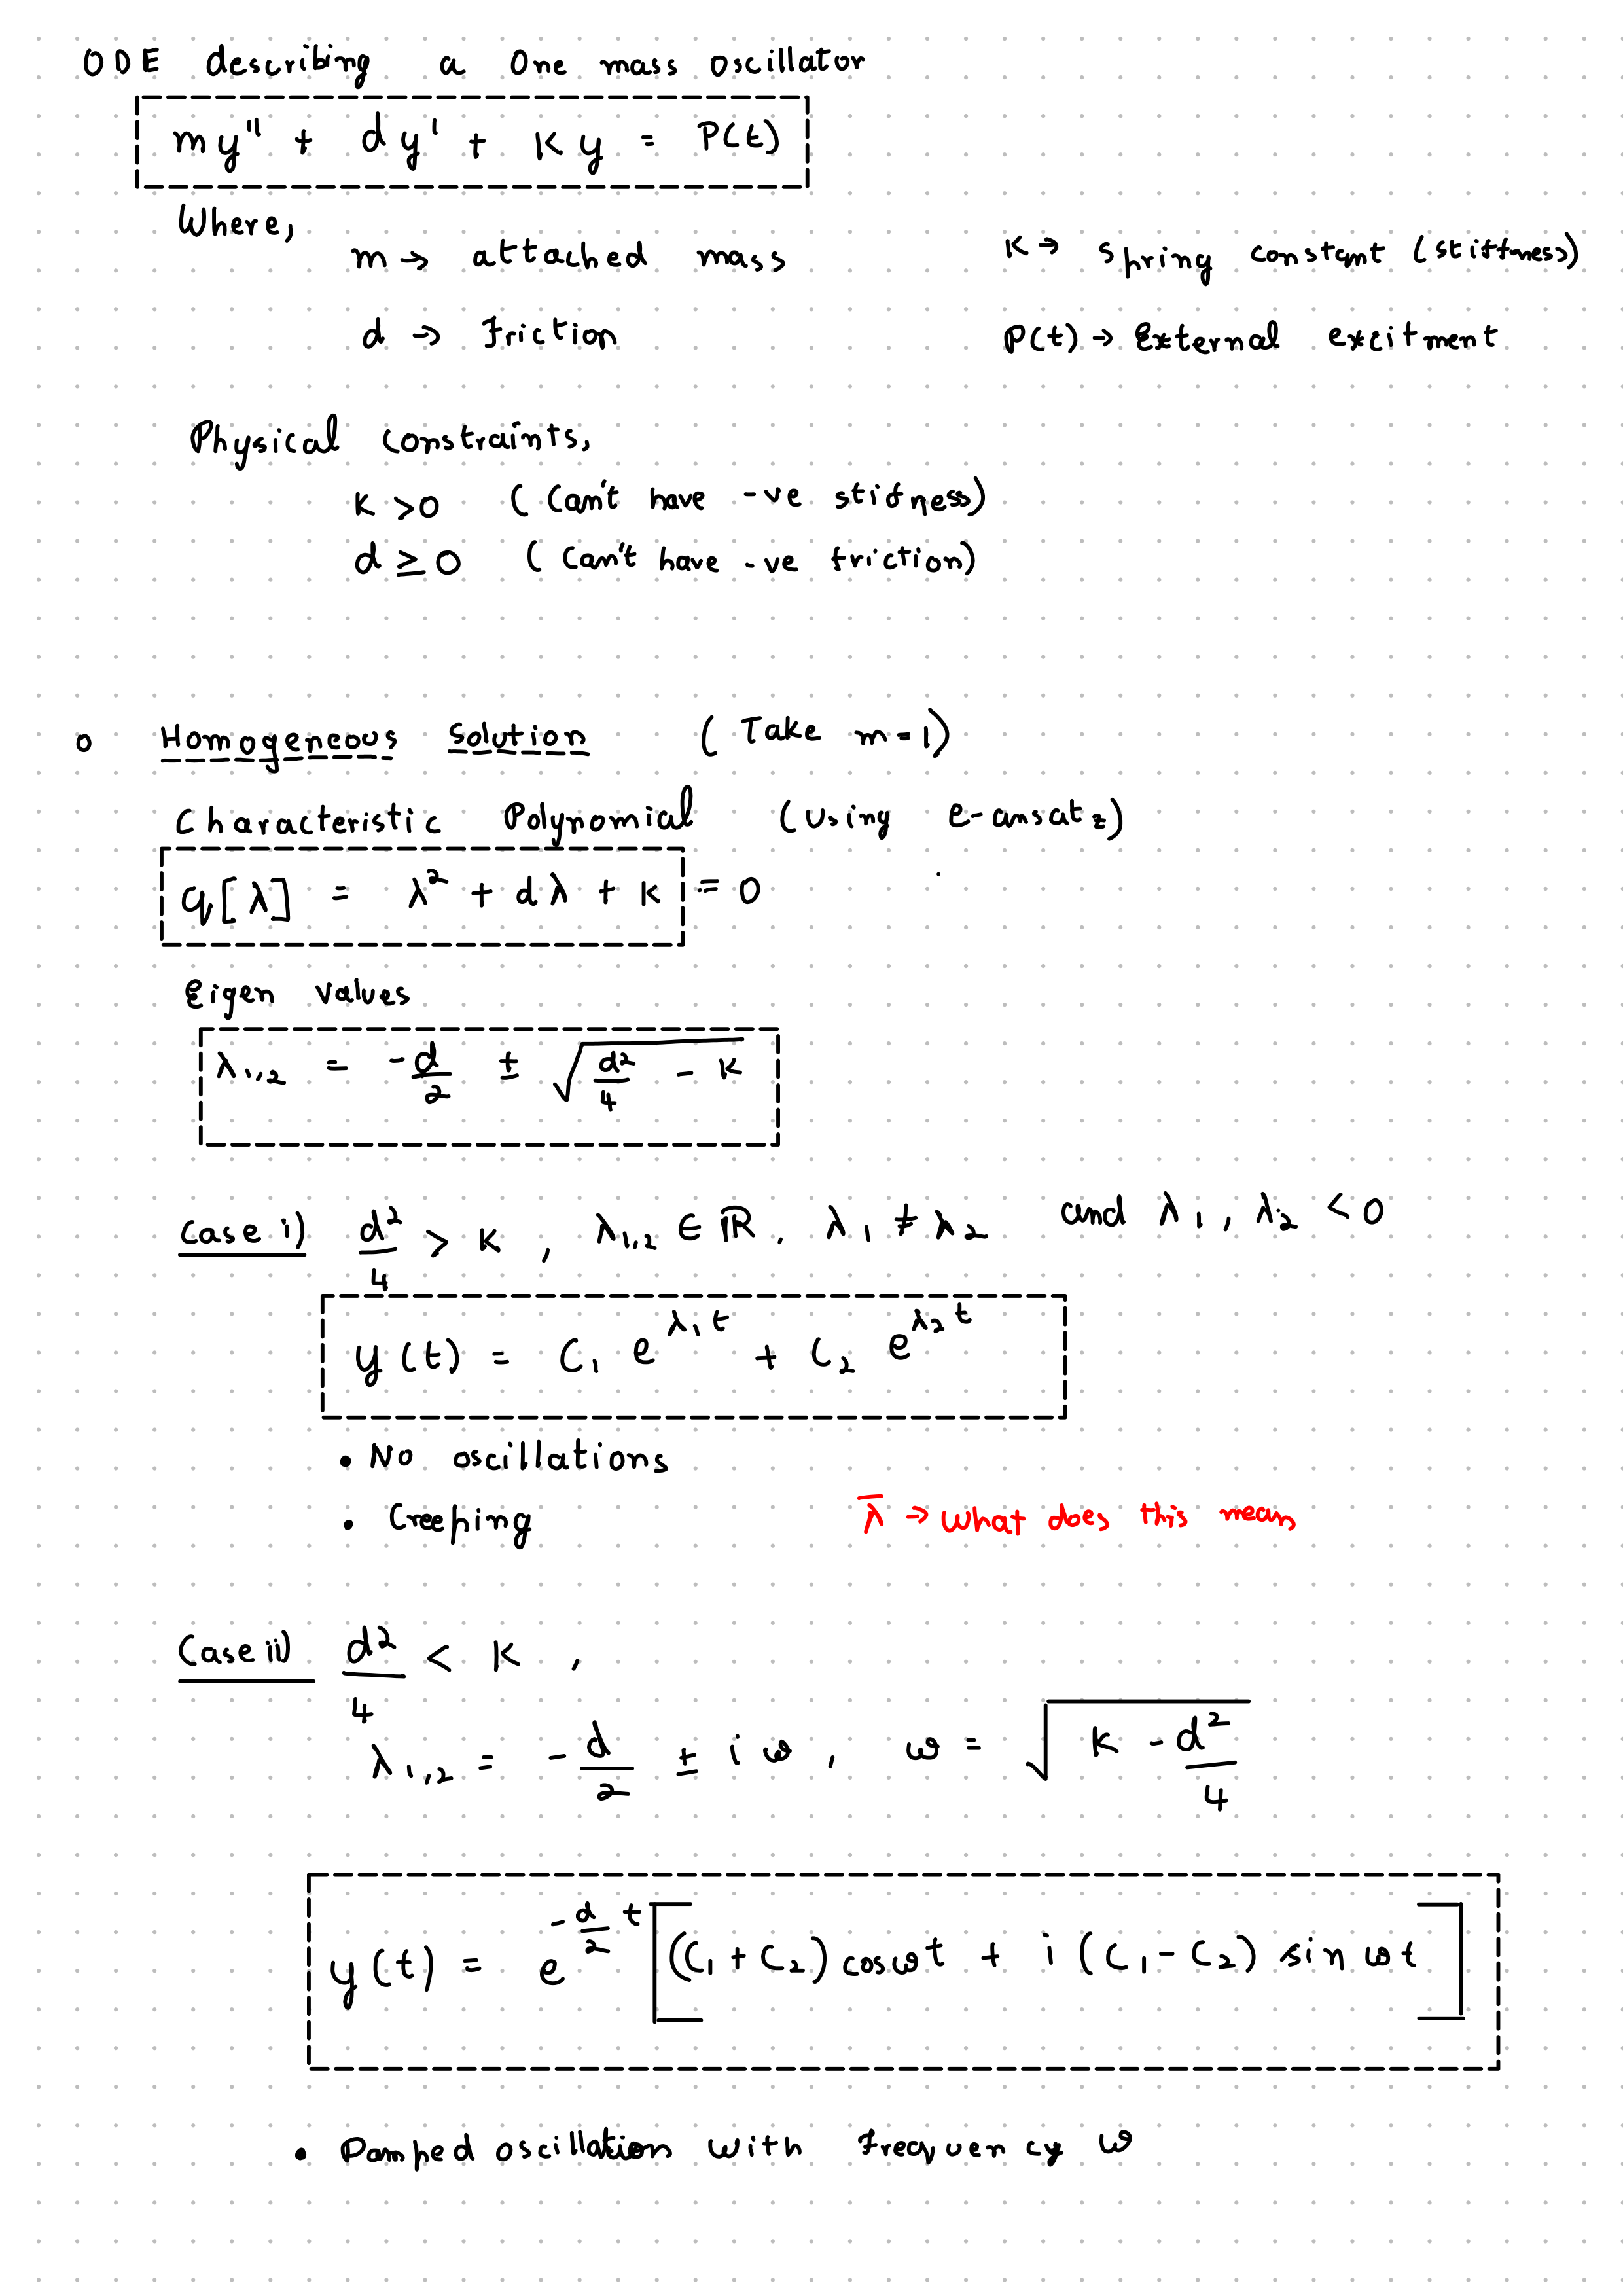 ODE describing a One mass oscillator
my'' + dy' + Ky = P(t)
Where,
m → attached mass
K → spring constant (stiffness)
d → Friction
P(t) → External excitment
Physical constraints,
K > 0 (Can't have -ve stifness)
d ≥ 0 (Can't have -ve friction)
o Homogeneous Solution (Take m = 1)
Characteristic Polynomial (Using e-ansatz)
q[λ] = λ² + dλ + K = 0
Eigen values
λ₁,₂ = -d/2 ± √(d²/4 - K)
Case i) d²/4 > K, λ₁,₂ ∈ ℝ, λ₁ ≠ λ₂ and λ₁, λ₂ < 0
y(t) = C₁ e^(λ₁t) + C₂ e^(λ₂t)
• No oscillations
• Creeping
λ̅ → What does this mean
Case ii) d²/4 < K,
λ₁,₂ = -d/2 ± iω, ω = √(K - d²/4)
y(t) = e^(-d/2 t) [(C₁ + C₂) cos ωt + i (C₁ - C₂) sin ωt]
• Damped oscillation with Frequency ω